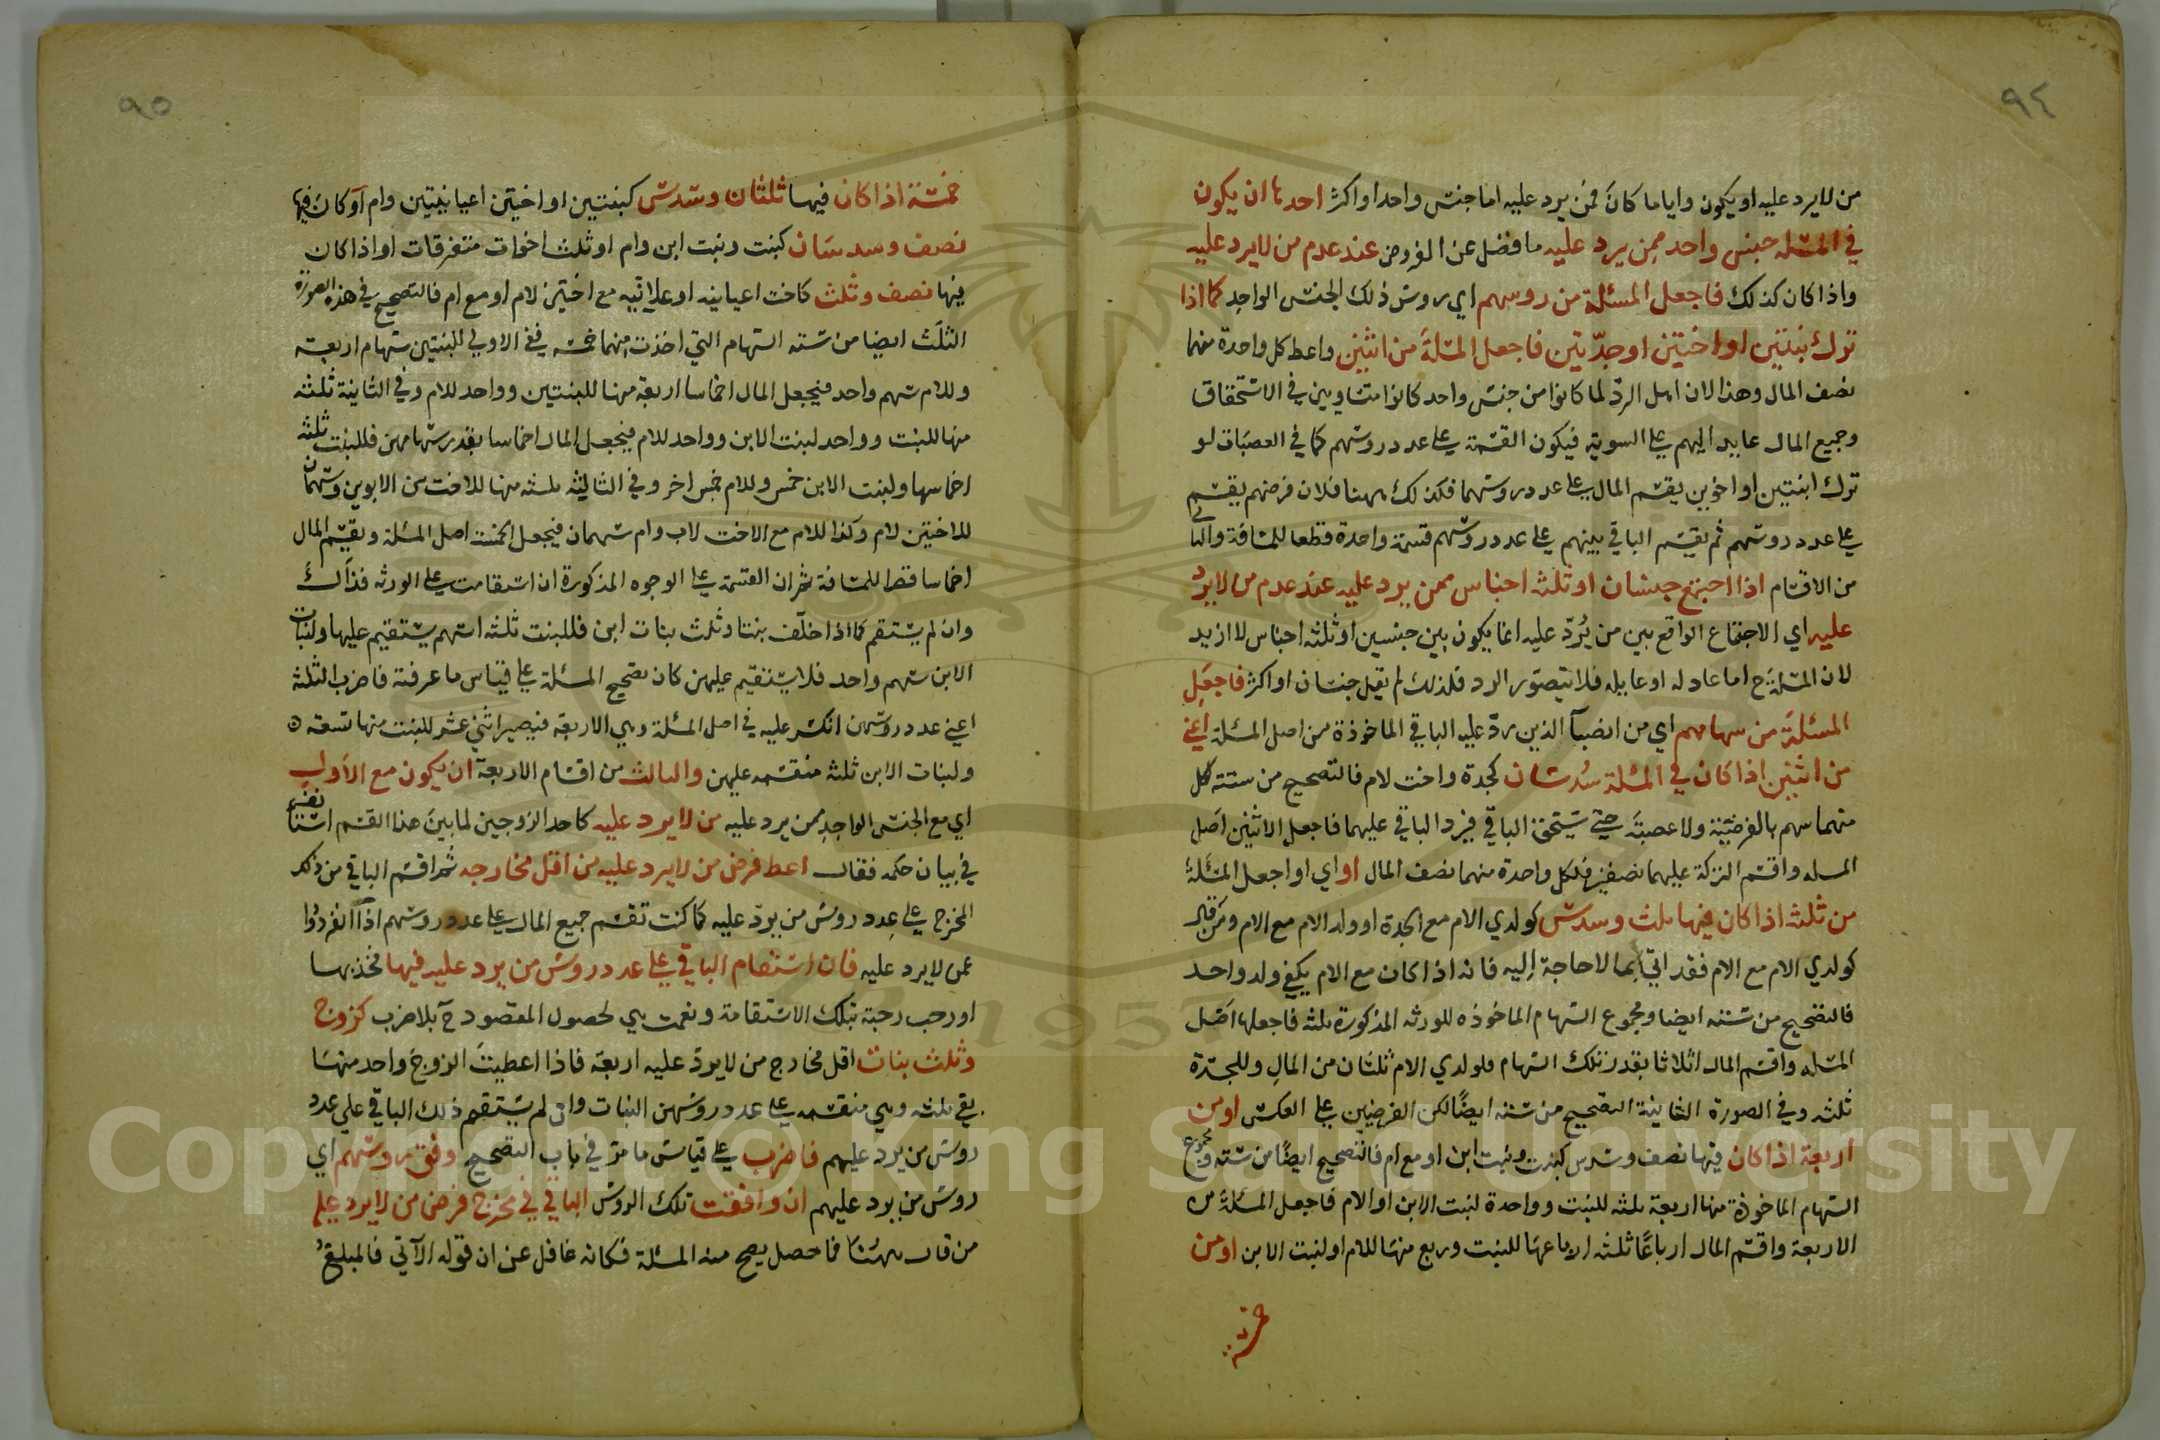 ٩٤
من لا يرد عليه او يكون واياما كان فمن يرد عليه اما جنس واحد او اكثر احدها ان يكون
في المسئله جنس واحد ممن يرد عليه ما فضل عن الفروض عند عدم من لا يرد عليه
واذا كان كذلك فاجعل المسئلة من روسهم اي روس ذلك الجنس الواحد كما اذا
ترك بنتين او اختين او جدتين فاجعل المسئلة من اثنين واعط كل واحدة منهما
نصف المال وهذا لان اهل الرد لما كانوا من جنس واحد كانوا متساويين في الاستحقاق
وجميع المال عايد اليهم على السوية فيكون القسمة على عدد روسهم كما في العصبات لو
ترك ابنتين او اخوين يقسم المال على عدد روسهما فكذلك ههنا فلان فرضهم يقسم
على عدد روسهم ثم يقسم الباقي بينهم على عدد روسهم قسمة واحدة قطعا للمسافة والثاني
من الاقسام اذا اجتمع جنسان او ثلثه اجناس ممن يرد عليه عند عدم من لا يرد
عليه اي الاجتماع الواقع بين من يرد عليه انما يكون بين جنسين او ثلثه اجناس لا ازيد
لان المسئلة ح اما عادله او عايله فلا يتصور الرد فلذلك لم يقل جنسان او اكثر فاجعل
المسئلة من سهامهم اي من انصبآ الذين رد عليه الباقي الماخوذة من اصل المسئلة اعني
من اثنين اذا كان في المسئلة سدسان كجدة واخت لام فالتصحيح من ستة لكل
منهما سهم بالفرضية ولا عصبة حتى يستحق الباقي فيرد الباقي عليهما فاجعل الاثنين اصل
المسله واقسم التركة عليهما نصفين فلكل واحدة منهما نصف المال او اي او اجعل المسئلة
من ثلثه اذا كان فيها ثلث وسدس كولدي الام مع الجدة او ولد الام مع الام ومن قال
كولدي الام مع الام فقد اتي بما لا حاجة اليه فانه اذا كان مع الام يكفي ولد واحد
فالتصحيح من سته ايضا ومجموع السهام الماخوذه للورثه المذكورة ثلثه فاجعلها اصل
المسله واقسم المال اثلاثا بقدر تلك السهام فلولدي الام ثلثان من المال وللجدة
ثلثه وفي الصورة الثانية التصحيح من سته ايضا لكن الفرضين على العكس او من
اربعة اذا كان فيها نصف وسدس كبنت وبنت ابن او مع ام فالتصحيح ايضا من سته ومجموع
السهام الماخوذة منها اربعة ثلثه للبنت وواحدة لبنت الابن او الام فاجعل المسئلة من
الاربعة واقسم المال ارباعا ثلثه ارباعها للبنت وربع منها للام او لبنت الابن او من
خمسة
٩٥
خمسة اذا كان فيها ثلثان وسدس كبنتين او اختين اعيانيتين وام او كان فيها
نصف وسدسان كبنت وبنت ابن وام او ثلث اخوات متفرقات او اذا كان
فيها نصف وثلث كاخت اعيانيه او علاتيه مع اختين لام او مع ام فالتصحيح في هذه الصورة
الثلث ايضا من سته السهام التي اخذت منهما خمسه ففي الاولي للبنتين سهام اربعة
وللام سهم واحد فيجعل المال اخماسا اربعة منها للبنتين وواحد للام وفي الثانية ثلثه
منها للبنت وواحد لبنت الابن وواحد للام فيجعل المال اخماسا بقدر سهامهن فللبنت ثلثه
اخماسها ولبنت الابن خمس وللام خمس اخر وفي الثالثه ثلثه منها للاخت من الابوين وسهمان
للاختين لام وكذا للام مع الاخت لاب وام سهمان فيجعل الخمسة اصل المسئلة ويقسم المال
اخماسا قطعا للمسافة ثم ان القسمة على الوجوه المذكورة ان استقامت على الورثه فذاك
وان لم يستقم كما اذا خلف بنتا وثلث بنات ابن فللبنت ثلثه اسهم يستقيم عليها ولبنات
الابن سهم واحد فلا يستقيم عليهن كان تصحيح المسئلة على قياس ما عرفته فاضرب الثلثة
اعني عدد روس من انكسر عليه في اصل المسئلة وهي الاربعة فيصير اثني عشر للبنت منها تسعة
ولبنات الابن ثلثة منقسمه عليهن والثالث من اقسام الاربعة ان يكون مع الاول
اي مع الجنس الواحد ممن يرد عليه من لا يرد عليه كاحد الزوجين لما بين هذا القسم
في بيان حكمه فقال اعط فرض من لا يرد عليه من اقل مخارجه ثم اقسم الباقي من ذلك
المخرج على عدد روس من يرد عليه كما كنت تقسم جميع المال على عدد روسهم اذا انفردوا
عمن لا يرد عليه فان استقام الباقي على عدد روس من يرد عليه فيها فخذ بها
او رحب رحبة تلك الاستقامة ونعمت هي لحصول المقصود ح بلا ضرب كزوج
وثلث بنات اقل مخارج من لا يرد عليه اربعة فاذا اعطيت الزوج واحد منها
بقي ثلثه وهي منقسمه على عدد روسهن البنات وان لم يستقم ذلك الباقي علي عدد
روس من يرد عليهم فاضرب على قياس ما مر في باب التصحيح وفق روسهم اي
روس من يرد عليهم ان وافقت تلك الروس الباقي في مخرج فرض من لا يرد عليه
من قال ههنا فما حصل يصح منه المسئلة فكانه غافل عن ان قوله الآتي فالمبلغ
Copyright © King Saud University
1957